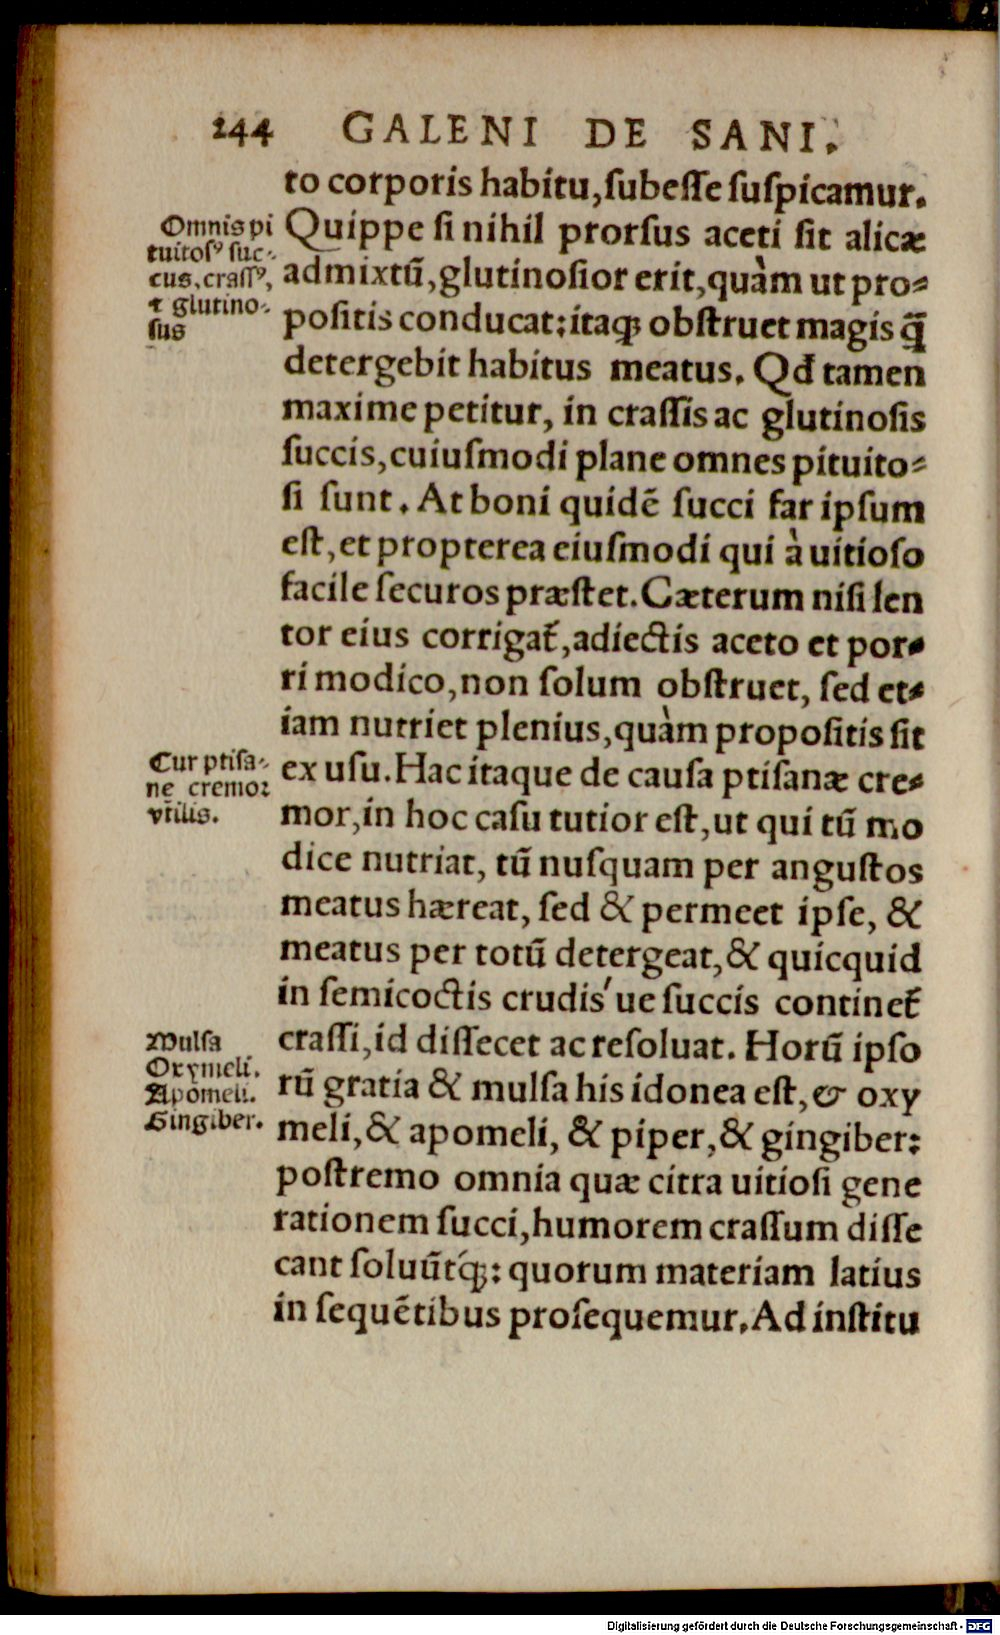 244 GALENI DE SANI.
to corporis habitu,ſubeſſe ſuſpicamur.
Quippe ſi nihil prorſus aceti ſit alicæ
admixtū,glutinoſior erit,quàm ut pro⸗
poſitis conducat:itaqꝫ obſtruet magis q̄
detergebit habitus meatus. Qđ tamen
maxime petitur, in craſſis ac glutinoſis
ſuccis,cuiuſmodi plane omnes pituito⸗
ſi ſunt. At boni quidē ſucci far ipſum
eſt,et propterea eiuſmodi qui à uitioſo
facile ſecuros præſtet. Cæterum niſi len
tor eius corrigat̃,adiectis aceto et por⸗
ri modico,non ſolum obſtruet, ſed et⸗
iam nutriet plenius,quàm propoſitis ſit
ex uſu. Hac itaque de cauſa ptiſanæ cre⸗
mor,in hoc caſu tutior eſt,ut qui tū mo
dice nutriat, tū nuſquam per anguſtos
meatus hæreat, ſed & permeet ipſe, &
meatus per totū detergeat,& quicquid
in ſemicoctis crudis'ue ſuccis continet̃
craſſi,id diſſecet ac reſoluat. Horū ipſo
rū gratia & mulſa his idonea eſt,& oxy
meli,& apomeli, & piper,& gingiber:
poſtremo omnia quæ citra uitioſi gene
rationem ſucci,humorem craſſum diſſe
cant ſoluūtq́ꝫ: quorum materiam latius
in ſequētibus proſequemur. Ad inſtitu
Omnis pi
tuitoſꝰ ſuc⸗
cus, craſſꝰ,
⁊ glutino⸗
ſus
Cur ptiſa⸗
ne cremor
vtilis.
Mulſa
Oxymeli.
Apomeli.
Gingiber.
Digitalisierung gefördert durch die Deutsche Forschungsgemeinschaft - DFG